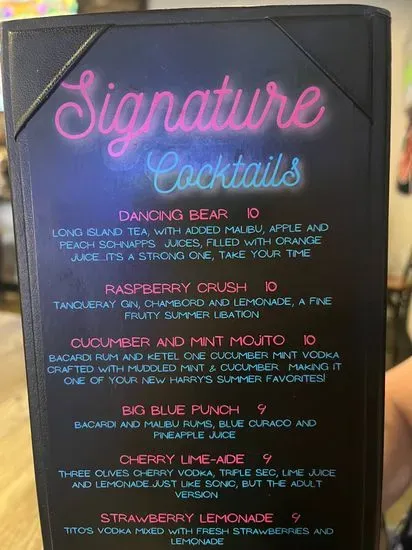 Signature
Cocktails
DANCING BEAR 10
LONG ISLAND TEA, WITH ADDED MALIBU, APPLE AND
PEACH SCHNAPPS JUICES, FILLED WITH ORANGE
JUICE...IT'S A STRONG ONE, TAKE YOUR TIME
RASPBERRY CRUSH 10
TANQUERAY GIN, CHAMBORD AND LEMONADE, A FINE
FRUITY SUMMER LIBATION
CUCUMBER AND MINT MOJITO 10
BACARDI RUM AND KETEL ONE CUCUMBER MINT VODKA
CRAFTED WITH MUDDLED MINT & CUCUMBER MAKING IT
ONE OF YOUR NEW HARRY'S SUMMER FAVORITES!
BIG BLUE PUNCH 9
BACARDI AND MALIBU RUMS, BLUE CURACO AND
PINEAPPLE JUICE
CHERRY LIME-AIDE 9
THREE OLIVES CHERRY VODKA, TRIPLE SEC, LIME JUICE
AND LEMONADE.JUST LIKE SONIC, BUT THE ADULT
VERSION
STRAWBERRY LEMONADE 9
TITO'S VODKA MIXED WITH FRESH STRAWBERRIES AND
LEMONADE